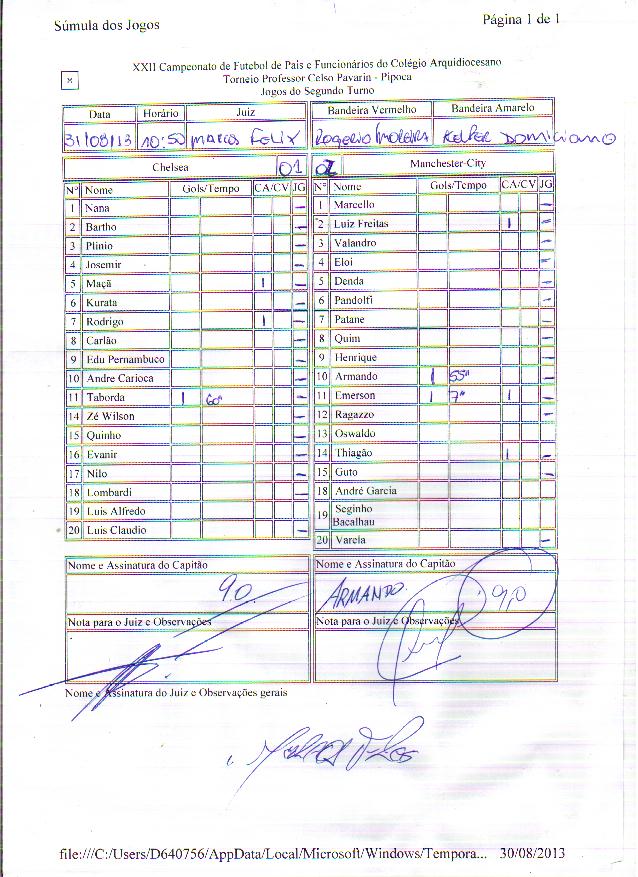 Súmula dos Jogos Página 1 de 1
XXII Campeonato de Futebol de Pais e Funcionários do Colégio Arquidiocesano
Torneio Professor Celso Pavarin - Pipoca
Jogos do Segundo Turno
Data Horário Juiz Bandeira Vermelho Bandeira Amarelo
31/08/13 10:50 MARCOS FELIX ROGERIO MOREIRA KELPER DOMICIANO
Chelsea 01 02 Manchester-City
Nº Nome Gols/Tempo CA/CV JG Nº Nome Gols/Tempo CA/CV JG
1 Nana — 1 Marcello —
2 Bartho — 2 Luiz Freitas 1 —
3 Plinio — 3 Valandro —
4 Josemir — 4 Eloi —
5 Maçã 1 — 5 Denda —
6 Kurata — 6 Pandolfi —
7 Rodrigo 1 — 7 Patane —
8 Carlão — 8 Quim —
9 Edu Pernambuco — 9 Henrique —
10 Andre Carioca — 10 Armando 1 55" —
11 Taborda 1 60" — 11 Emerson 1 7" 1 —
14 Zé Wilson — 12 Ragazzo —
15 Quinho — 13 Oswaldo
16 Evanir — 14 Thiagão 1 —
17 Nilo — 15 Guto —
18 Lombardi — 18 André Garcia
19 Luis Alfredo 19 Seginho Bacalhau
20 Luis Claudio — 20 Varela —
Nome e Assinatura do Capitão Nome e Assinatura do Capitão
9.0 ARMANDO. 9,0
Nota para o Juiz e Observações Nota para o Juiz e Observações
Nome e Assinatura do Juiz e Observações gerais
file:///C:/Users/D640756/AppData/Local/Microsoft/Windows/Tempora... 30/08/2013